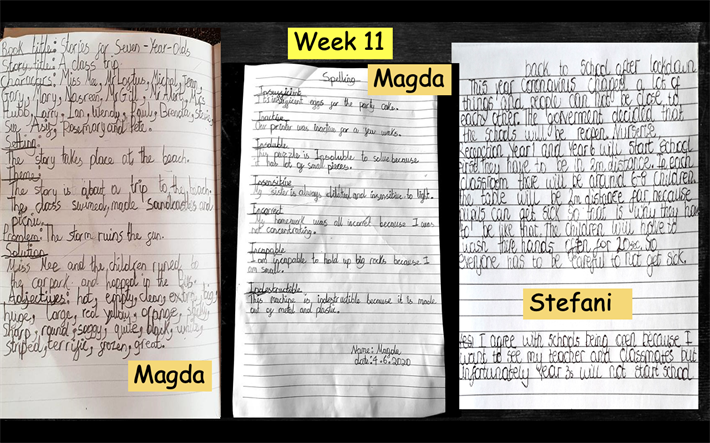 Week 11
Book title: Stories for Seven-Year-Olds
Story title: A class trip
Characters: Miss Mee, Mr Loftus, Michal, Jenny,
Gary, Mary, Nasreem, Mr Gill, Mr Alert, Mrs
Hubb, Larry, Ian, Wendy, Paul, Brenda, Shirley,
Sue, Asif, Rosemary and Pete.
Setting:
The story takes place at the beach.
Theme:
The story is about a trip to the beach.
The class swimed, made sandcastles and
picnic.
Problem: The storm ruins the sun.
Solution:
Miss Mee and the children runed to
the car park and hopped in the bus.
Adjectives: hot, empty, clean, extra, big,
huge, large, red, yellow, orange, spiky,
sharp, round, soggy, quite, black, white,
striped, terrific, frozen, great.
Magda
Spelling
Magda
Insufficient
It's insufficient eggs for the party cake.
Inactive
Our printer was inactive for a few weeks.
Insoluble
This puzzle is insoluble to solve because
it has lot of small pieces.
Insensitive
My sister is always and insensitive to light.
Incorrect
My homework was all incorrect because I was
not concentrating.
Incapable
I am incapable to hold up big rocks because I
am small.
Indestructible
This machine is indestructible because it is made
out of metal and plastic.
Name: Magda
date: 4.6.2020
back to school after lockdown
This year Coronavirus changed a lot of
things and people can not be close to
each other. The goverment decided that
the schools will be reopen. Nursery
Reception year 1 and year 6 will start school
first they have to be in 2m distance. In each
classroom there will be around 6-9 children.
the table will be 2m distance far because
pupils can get sick so that is why they have
to be like that. The children will have to
wash thire hands often for 20sec. So
everyone has to be careful to not get sick.
Stefani
Yes! I agree with schools being open because I
want to see my teacher and classmates but
unfortunately Year 3s will not start school